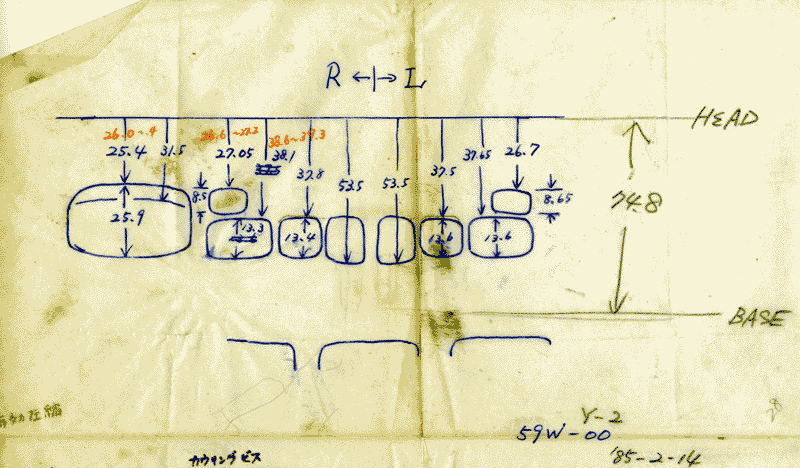 R ←|→ L
HEAD
26.0~.9 26.6~27.2 38.6~39.3
25.4 31.5 27.05 38.1 37.8 53.5 53.5 37.5 37.65 26.7
8.5 8.65
74.8
25.9 13.3 13.4 13.6 13.6
BASE
Y-2
59W-00
カウリングビス
'85-2-14